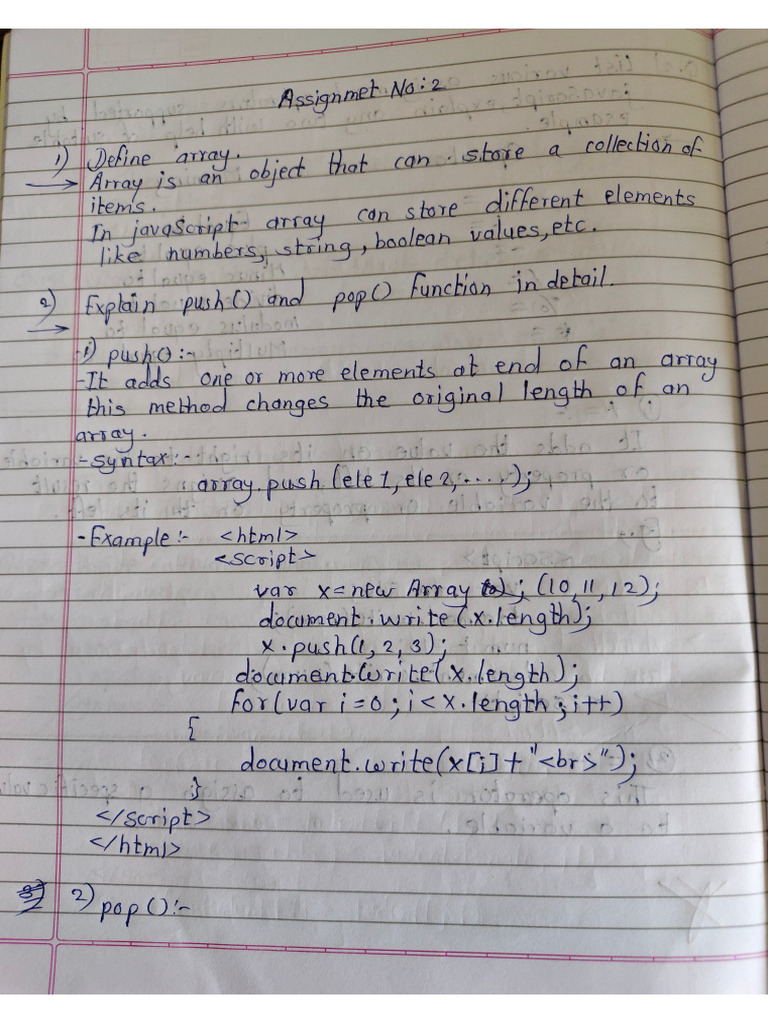 Assignmet No: 2
1) Define array.
→ Array is an object that can store a collection of
items.
In javaScript array can store different elements
like numbers, string, boolean values, etc.
2) Explain push() and pop() function in detail.
→
1) push():-
-It adds one or more elements at end of an array
this method changes the original length of an
array.
-syntax:-
array.push(ele1, ele2, .....);
-Example:- <html>
<script>
var x=new Array (10,11,12);
document.write(x.length);
x.push(1, 2, 3);
document.write(x.length);
for(var i=0; i<x.length; i++)
{
document.write(x[i]+"<br>");
}
</script>
</html>
2) pop():-